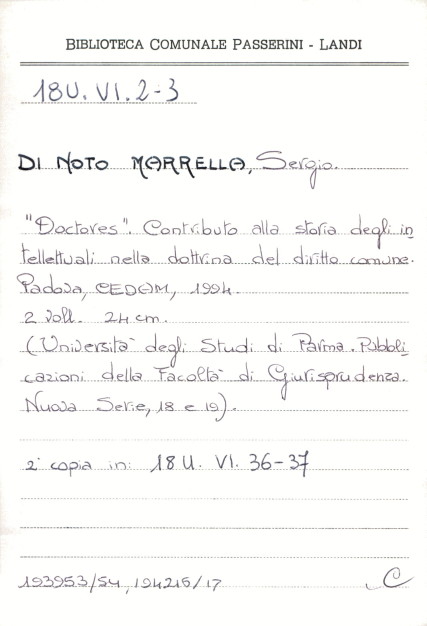 BIBLIOTECA COMUNALE PASSERINI - LANDI
18U. VI. 2-3
DI NOTO MARRELLA, Sergio.
"Doctores". Contributo alla storia degli in
tellettuali nella dottrina del diritto comune.
Padova, CEDAM, 1994.
2 voll. 24 cm.
(Università degli Studi di Parma. Pubbli
cazioni della Facoltà di Giurisprudenza.
Nuova Serie, 18 e 19).
2ª copia in: 18 U. VI. 36-37
193953/54, 194216/17
C